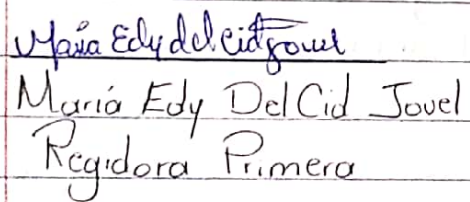 María Edy del Cid Jovel
María Edy Del Cid Jovel
Regidora Primera